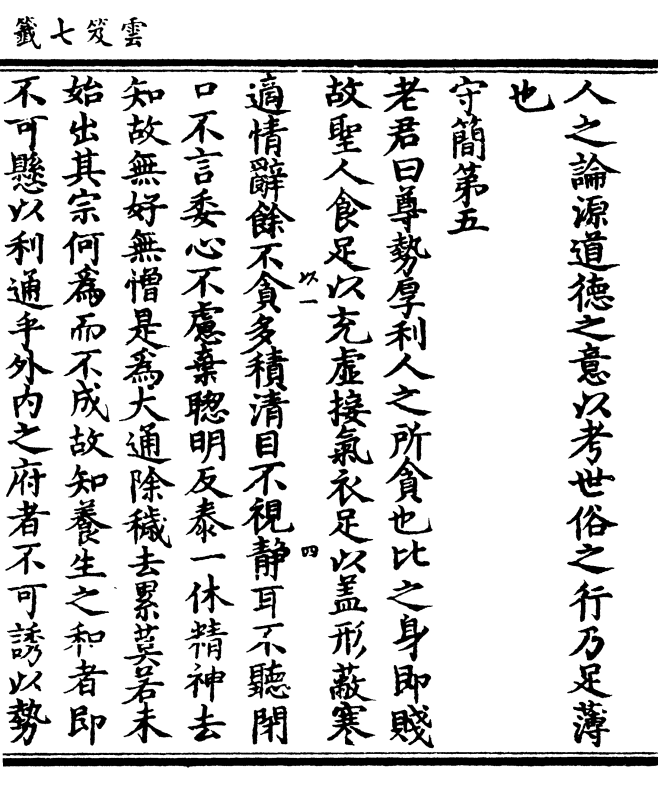 雲笈七籤
人之論源道德之意以考世俗之行乃足薄
也
守簡第五
老君曰尊勢厚利人之所貪也比之身即賤
故聖人食足以充虛接氣衣足以盖形蔽寒
以一
四
適情辭餘不貪多積清目不視静耳不聽閉
口不言委心不慮棄聰明反泰一休精神去
知故無好無憎是為大通除穢去累莫若未
始出其宗何為而不成故知養生之和者即
不可懸以利通乎外内之府者不可誘以勢